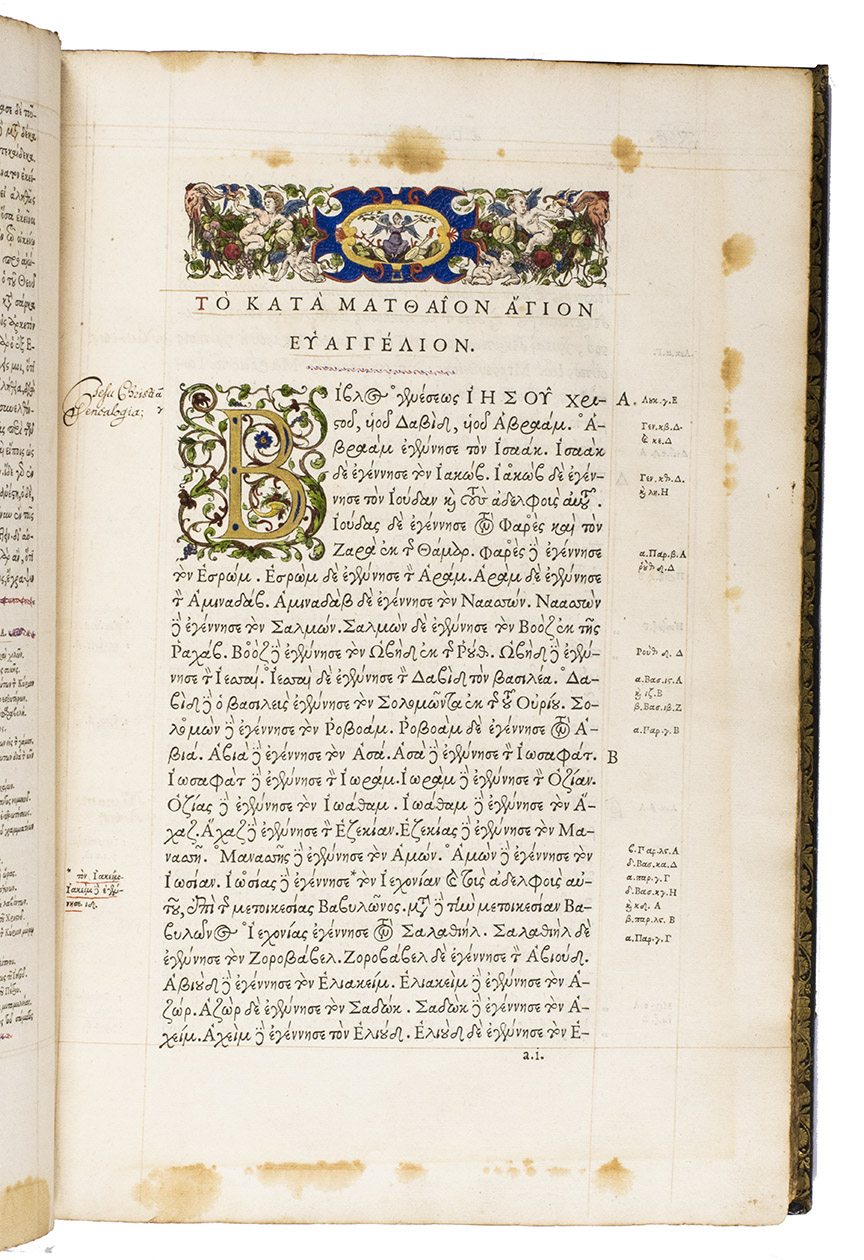 ΤῸ ΚΑΤᾺ ΜΑΤΘΑῖΟΝ ἍΓΙΟΝ
ΕΥ̓ΑΓΓΈΛΙΟΝ.
Jesu Christi
Genealogia;
Βίβλος γενέσεως ἸΗΣΟΥ͂ Χρι-
στοῦ, ὑιοῦ Δαβὶδ, ὑιοῦ Ἀβραάμ. Ἀ-
βραὰμ ἐγέννησε τὸν Ἰσαάκ. Ἰσαὰκ
δὲ ἐγέννησε τὸν Ἰακώβ. Ἰακὼβ δὲ ἐγέν-
νησε τὸν Ἰούδαν καὶ τοὺς ἀδελφοὺς αὐτοῦ.
Ἰούδας δὲ ἐγέννησε τὸν Φαρὲς καὶ τὸν
Ζαρὰ ἐκ τῆς Θάμαρ. Φαρὲς δὲ ἐγέννησε
τὸν Ἐσρώμ. Ἐσρὼμ δὲ ἐγέννησε τὸν Ἀράμ. Ἀρὰμ δὲ ἐγέννησε
τὸν Ἀμιναδάβ. Ἀμιναδὰβ δὲ ἐγέννησε τὸν Ναασσών. Ναασσὼν
δὲ ἐγέννησε τὸν Σαλμών. Σαλμὼν δὲ ἐγέννησε τὸν Βοὸζ ἐκ τῆς
Ῥαχάβ. Βοὸζ δὲ ἐγέννησε τὸν Ὠβὴδ ἐκ τῆς Ῥούθ. Ὠβὴδ δὲ ἐγέν-
νησε τὸν Ἰεσσαί. Ἰεσσαὶ δὲ ἐγέννησε τὸν Δαβὶδ τὸν βασιλέα. Δα-
βὶδ δὲ ὁ βασιλεὺς ἐγέννησε τὸν Σολομῶντα ἐκ τῆς τοῦ Οὐρίου. Σο-
λομὼν δὲ ἐγέννησε τὸν Ῥοβοάμ. Ῥοβοὰμ δὲ ἐγέννησε τὸν Ἀ-
βιά. Ἀβιὰ δὲ ἐγέννησε τὸν Ἀσά. Ἀσὰ δὲ ἐγέννησε τὸν Ἰωσαφάτ.
Ἰωσαφὰτ δὲ ἐγέννησε τὸν Ἰωράμ. Ἰωρὰμ δὲ ἐγέννησε τὸν Ὀζίαν.
Ὀζίας δὲ ἐγέννησε τὸν Ἰωάθαμ. Ἰωάθαμ δὲ ἐγέννησε τὸν Ἄ-
χαζ. Ἄχαζ δὲ ἐγέννησε τὸν Ἐζεκίαν. Ἐζεκίας δὲ ἐγέννησε τὸν Μα-
νασσῆ. Μανασσῆς δὲ ἐγέννησε τὸν Ἀμών. Ἀμὼν δὲ ἐγέννησε τὸν
Ἰωσίαν. Ἰωσίας δὲ ἐγέννησε *τὸν Ἰεχονίαν καὶ τοὺς ἀδελφοὺς αὐ-
τοῦ, ἐπὶ τῆς μετοικεσίας Βαβυλῶνος. μετὰ δὲ τὴν μετοικεσίαν Βα-
βυλῶνος Ἰεχονίας ἐγέννησε τὸν Σαλαθιήλ. Σαλαθιὴλ δὲ
ἐγέννησε τὸν Ζοροβάβελ. Ζοροβάβελ δὲ ἐγέννησε τὸν Ἀβιούδ.
Ἀβιοὺδ δὲ ἐγέννησε τὸν Ἐλιακείμ. Ἐλιακεὶμ δὲ ἐγέννησε τὸν Ἀ-
ζώρ. Ἀζὼρ δὲ ἐγέννησε τὸν Σαδώκ. Σαδὼκ δὲ ἐγέννησε τὸν Ἀ-
χείμ. Ἀχεὶμ δὲ ἐγέννησε τὸν Ἐλιούδ. Ἐλιοὺδ δὲ ἐγέννησε τὸν Ἐ-
a.i.
* τὸν Ἰακείμ.
Ἰακεὶμ δὲ ἐγέν-
νησε
Α.
Λουκ.γ.Ε
Γεν.κβ.Δ.
κε.Δ
Γεν.κθ.Δ.
καὶ λη.Η
α.Παρ.β.Α
ῥοὺθ δ.Δ
Ῥοὺθ δ.Δ
α.Βασ.ις.Α
καὶ ιζ.Β
β.Βασ.ιβ.Ζ
α.Παρ.γ.Β
Β
β.Παρ.λς.Α
δ.Βασ.κα.Δ
α.παρ.γ.Γ
δ.Βασ.κγ.Η
καὶ κδ.Α
β.παρ.λς.Β
α.Παρ.γ.Γ